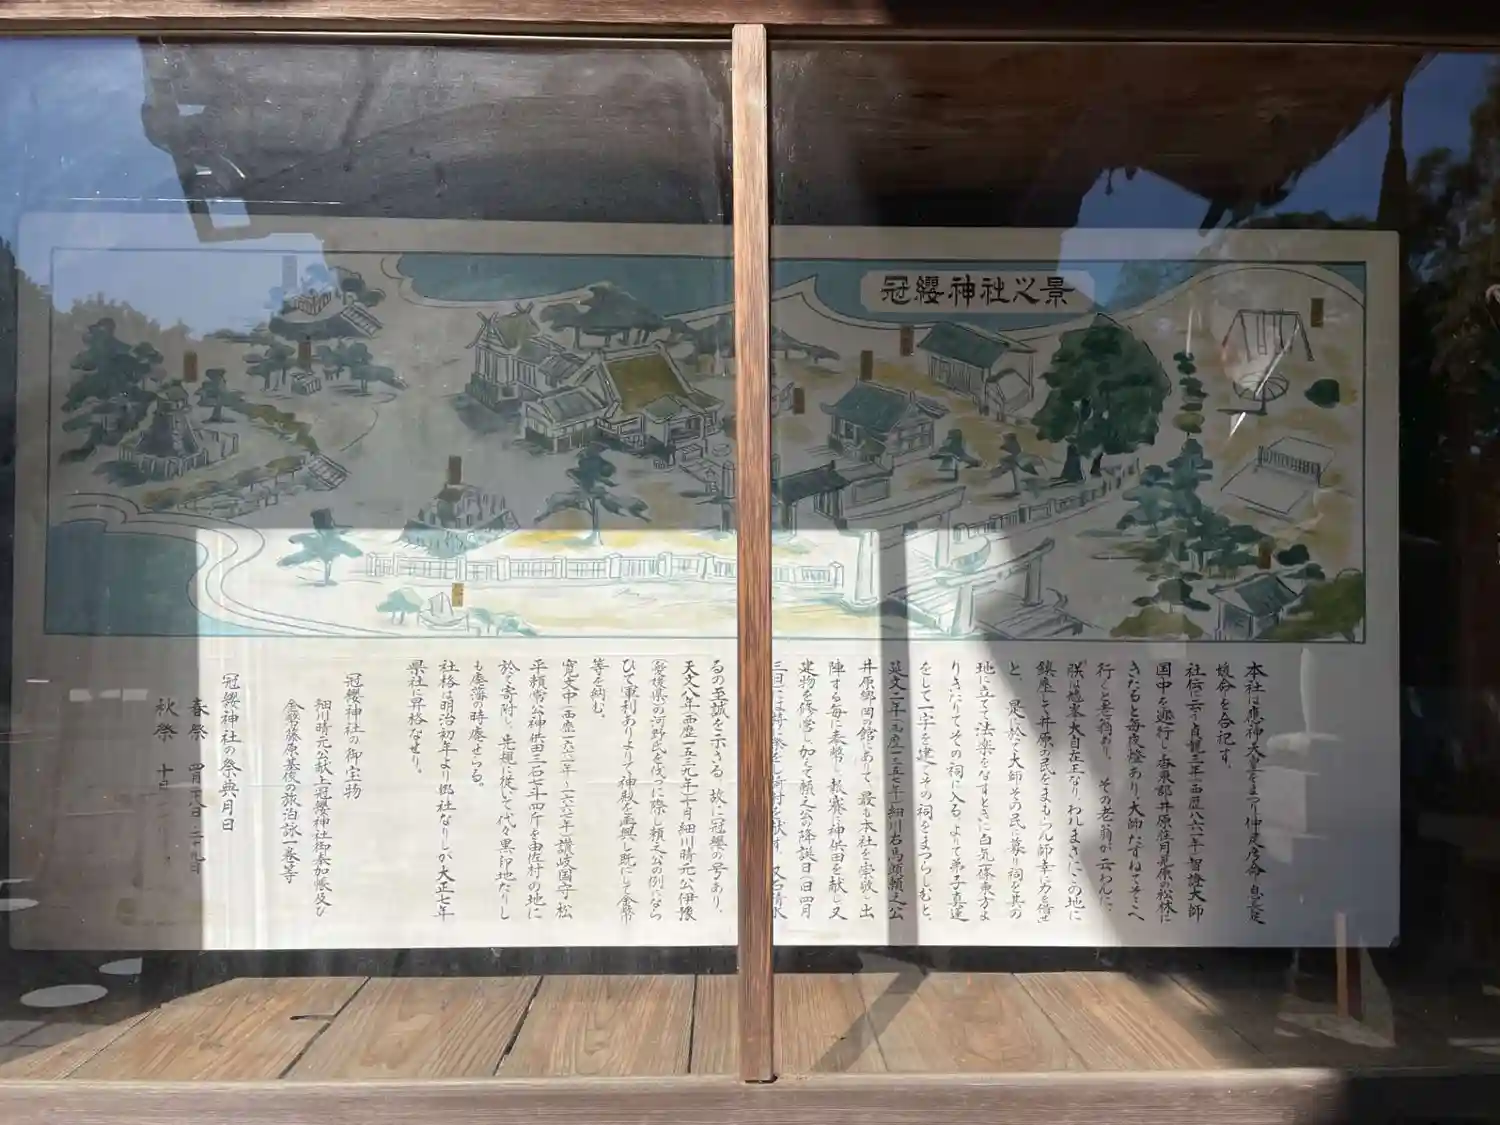 冠纓神社之景
本社は應神天皇をまつり仲足彦命 息長足
媛命を合祀す。
社伝に云う貞観三年(西歴八六一年)智證大師
国中を巡行し香東郡井原荘月見原の松林に
きたると毎夜燈あり、大師たずねてそこへ
行くと老翁あり、その老翁が云わんに、
朕は 大自在王なり、われまさにこの地に
鎮座して井原の民をまもらん師幸に力を借せ
と、是に於て大師その民に募り祠を其の
地に立てて法楽をなすときに白気一條東方よ
りきたりてその祠に入る、よりて弟子真蓮
をして一宇を建てその祠をまつらしむと、
延文二年(西歴一三五七年)細川右馬頭頼之公
井原郷岡の館にありて、最も本社を崇敬し出
陣する毎に奉幣し報賽に神供田を献じ又
建物を修営し加えて頼之公の降誕日(旧四月
三日)には
るの至誠を示さる、故に冠纓の号あり、
天文八年(西歴一五三九年)十月細川晴元公伊豫
(愛媛県)の河野氏を伐つに際し頼之公の例になら
ひて軍利ありよりて神殿を再興し既にして金幣
等を納む。
寛文中(西歴一六六一年～一六六七年)讃岐国守 松
平頼常公神供田三石七斗四斤を由佐村の地に
於て寄附し、先規に従いて代々黒印地たりし
も廃藩の時廃せらる。
社格は明治初年より郷社なりしが大正七年
県社に昇格なせり。
冠纓神社の御宝物
細川晴元公献立冠纓神社御奉加帳及び
金薮藤原基俊の旅泊詠一巻等
冠纓神社の祭典月日
春祭 四月
秋祭 十月